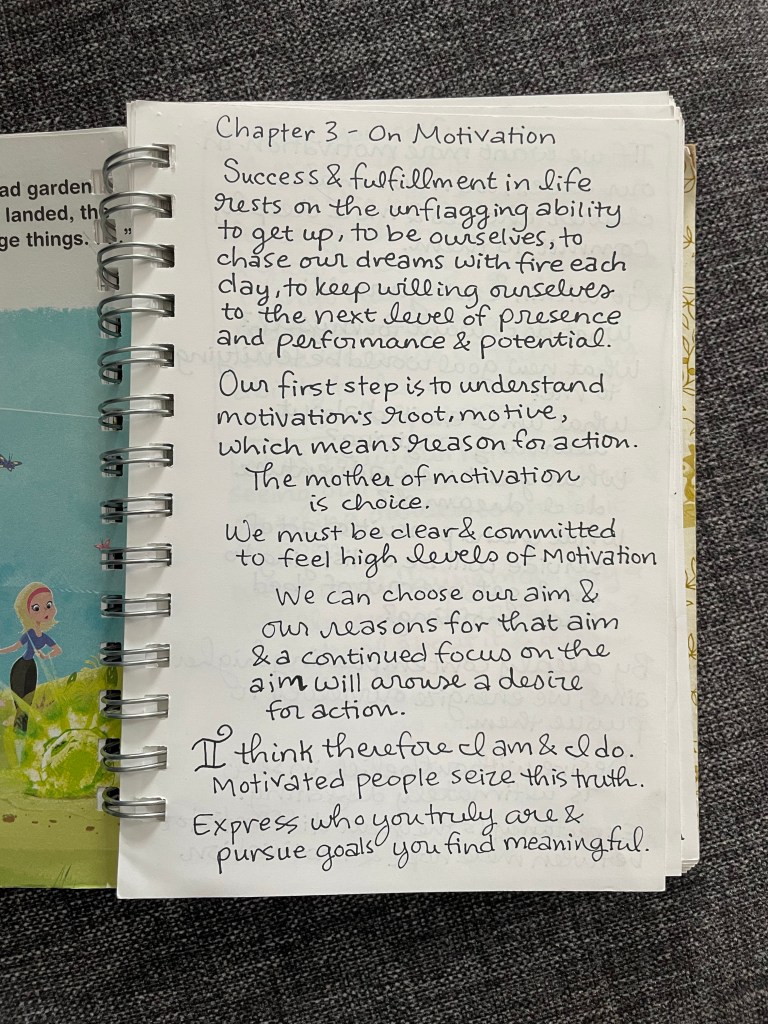 ad garden
landed, th
ge things.
."
Chapter 3 - On Motivation
Success & fulfillment in life
rests on the unflagging ability
to get up, to be ourselves, to
chase our dreams with fire each
day, to keep willing ourselves
to the next level of presence
and performance & potential.
Our first step is to understand
motivation's root, motive,
which means reason for action.
The mother of motivation
is choice.
We must be clear & committed
to feel high levels of Motivation
We can choose our aim &
our reasons for that aim
& a continued focus on the
aim will arouse a desire
for action.
I think therefore I am & I do.
Motivated people seize this truth.
Express who you truly are &
pursue goals you find meaningful.